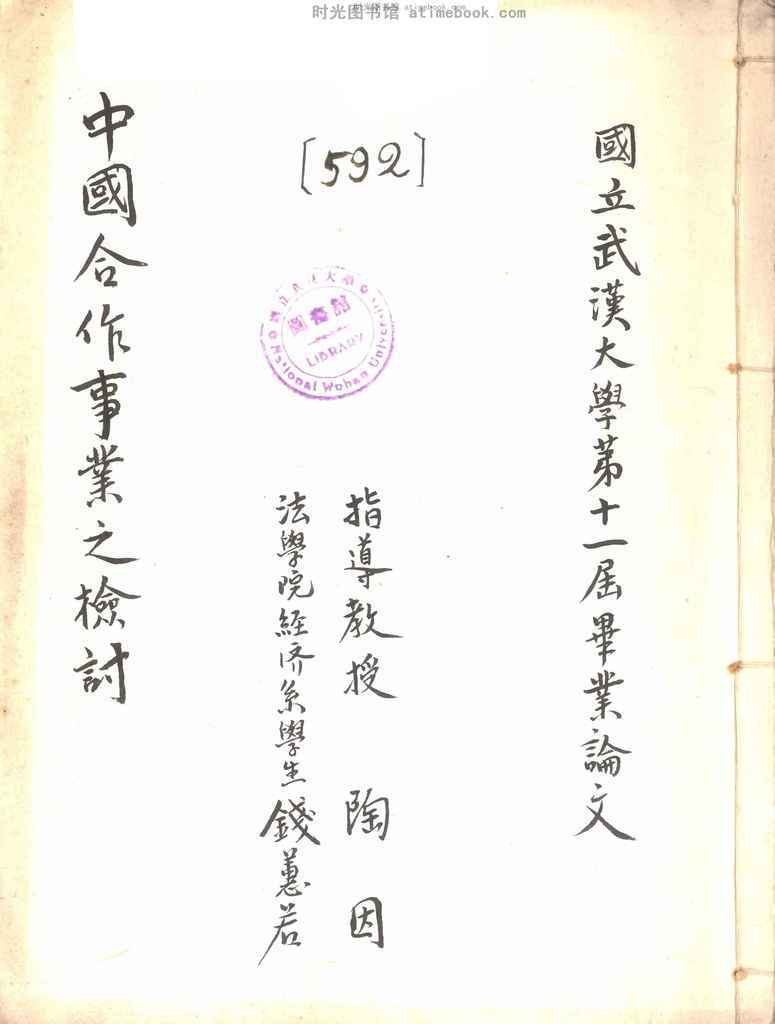 时光图书馆 atimebook.com
國立武漢大學第十一屆畢業論文
[592]
國立武漢大學
圖書館
LIBRARY
National Wuhan University
指導教授 陶因
法學院經济系學生 錢蕙若
中國合作事業之檢討